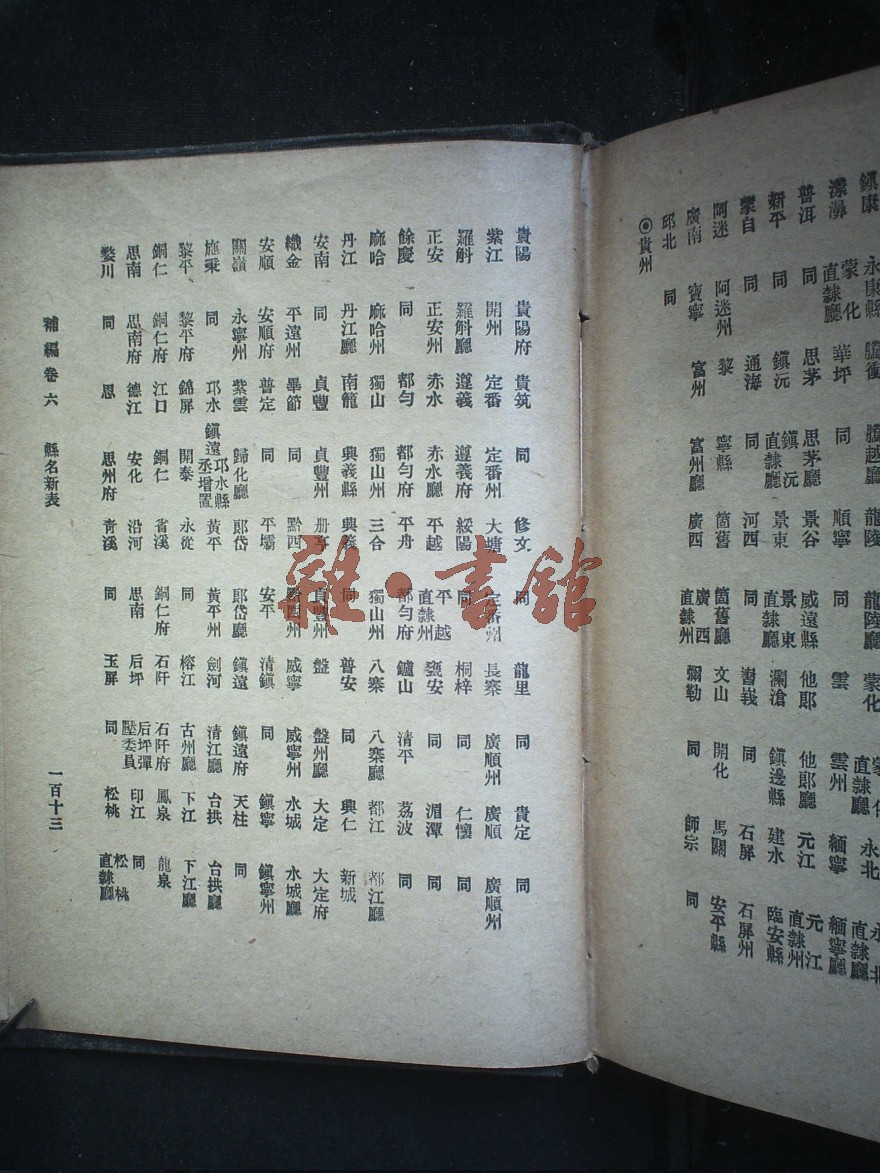 鎮康 永康縣 騰衝 騰越廳 龍陵 龍陵廳 蒙化 蒙化直隸廳 永北 永北直隸廳
漾濞 蒙化直隸廳 華坪 同 順寧 同 雲 雲州 緬寧 緬寧廳
普洱 同 思茅 思茅廳 景谷 威遠縣 他郎 他郎廳 元江 元江直隸州
新平 同 鎮沅 鎮沅直隸廳 景東 景東直隸廳 瀾滄 鎮邊縣 建水 臨安縣
蒙自 同 通海 河西 同 嶍峩 同 石屏 石屏州
阿迷 阿迷州 黎 寧縣 箇舊 箇舊廳 文山 開化 馬關 安平縣
廣南 寶寧 富州 富州廳 廣西 廣西直隸州 彌勒 同 師宗 同
邱北 同
◉貴州
貴陽 貴陽府 貴筑 同 修文 同 龍里 同 貴定 同
紫江 開州 定番 定番州 大塘 定番州 長寨 廣順州 廣順 廣順州
羅斛 羅斛廳 遵義 遵義府 綏陽 同 桐梓 同 仁懷 同
正安 正安州 赤水 赤水廳 平越 平越直隸州 甕安 同 湄潭 同
餘慶 同 都勻 都勻府 平舟 都勻府 鑪山 清平 荔波 同
麻哈 麻哈州 獨山 獨山州 三合 獨山州 八寨 八寨廳 都江 都江廳
丹江 丹江廳 南籠 興義縣 興義 同 普安 同 興仁 新城
安南 同 貞豐 貞豐州 册亨 貞豐州 盤 盤州廳 大定 大定府
織金 平遠州 畢節 同 黔西 黔西州 威寧 威寧州 水城 水城廳
安順 安順府 普定 同 平壩 安平 清鎮 鎮寧 鎮寧州
關嶺 永寧州 紫雲 歸化廳 郎岱 郎岱廳 鎮遠 鎮遠府 天柱 同
施秉 同 邛水 鎮遠邛水縣丞增置 黃平 黃平州 劍河 清江廳 台拱 台拱廳
黎平 黎平府 錦屏 開泰 永從 榕江 古州廳 下江 下江廳
銅仁 銅仁府 江口 銅仁 省溪 銅仁府 石阡 石阡府 鳳泉 龍泉
思南 思南府 德江 安化 沿河 思南 后坪 后坪彈壓委員 印江 同
婺川 同 思 思州府 青溪 同 玉屏 同 松桃 松桃直隸廳
補編卷六 縣名新表 一百十三
雜·書館